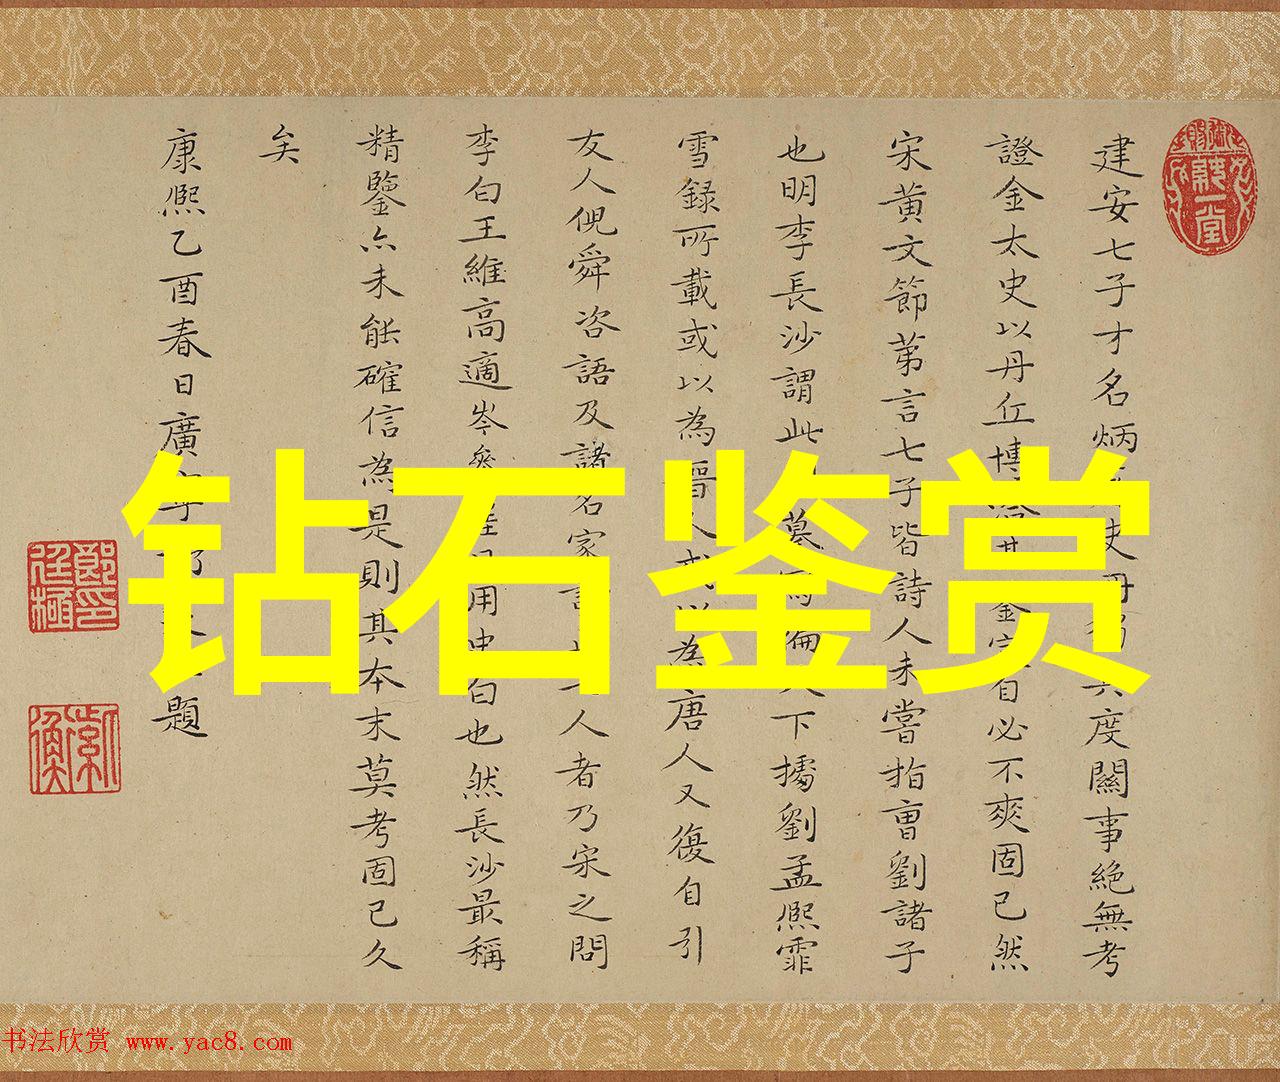 建安七子才名炳史冊獨其度關事絕無考
證金太史以丹丘博洽其鑒定自必不爽固已然
宋黃文節第言七子皆詩人未嘗指曹劉諸子
也明李長沙謂此摹寫倫次下據劉孟熙霏
雪錄所載或以為晉人或以為唐人又復自引
友人倪舜咨語及諸名家詩七人者乃宋之問
李白王維高適岑參崔用史白也然長沙最稱
精鑒亦未能確信為是則其本末莫考固已久
矣
康熙乙酉春日廣寧郎題
郎廷極印
紫衡
钻石鉴赏
书法欣赏 www.yac8.com